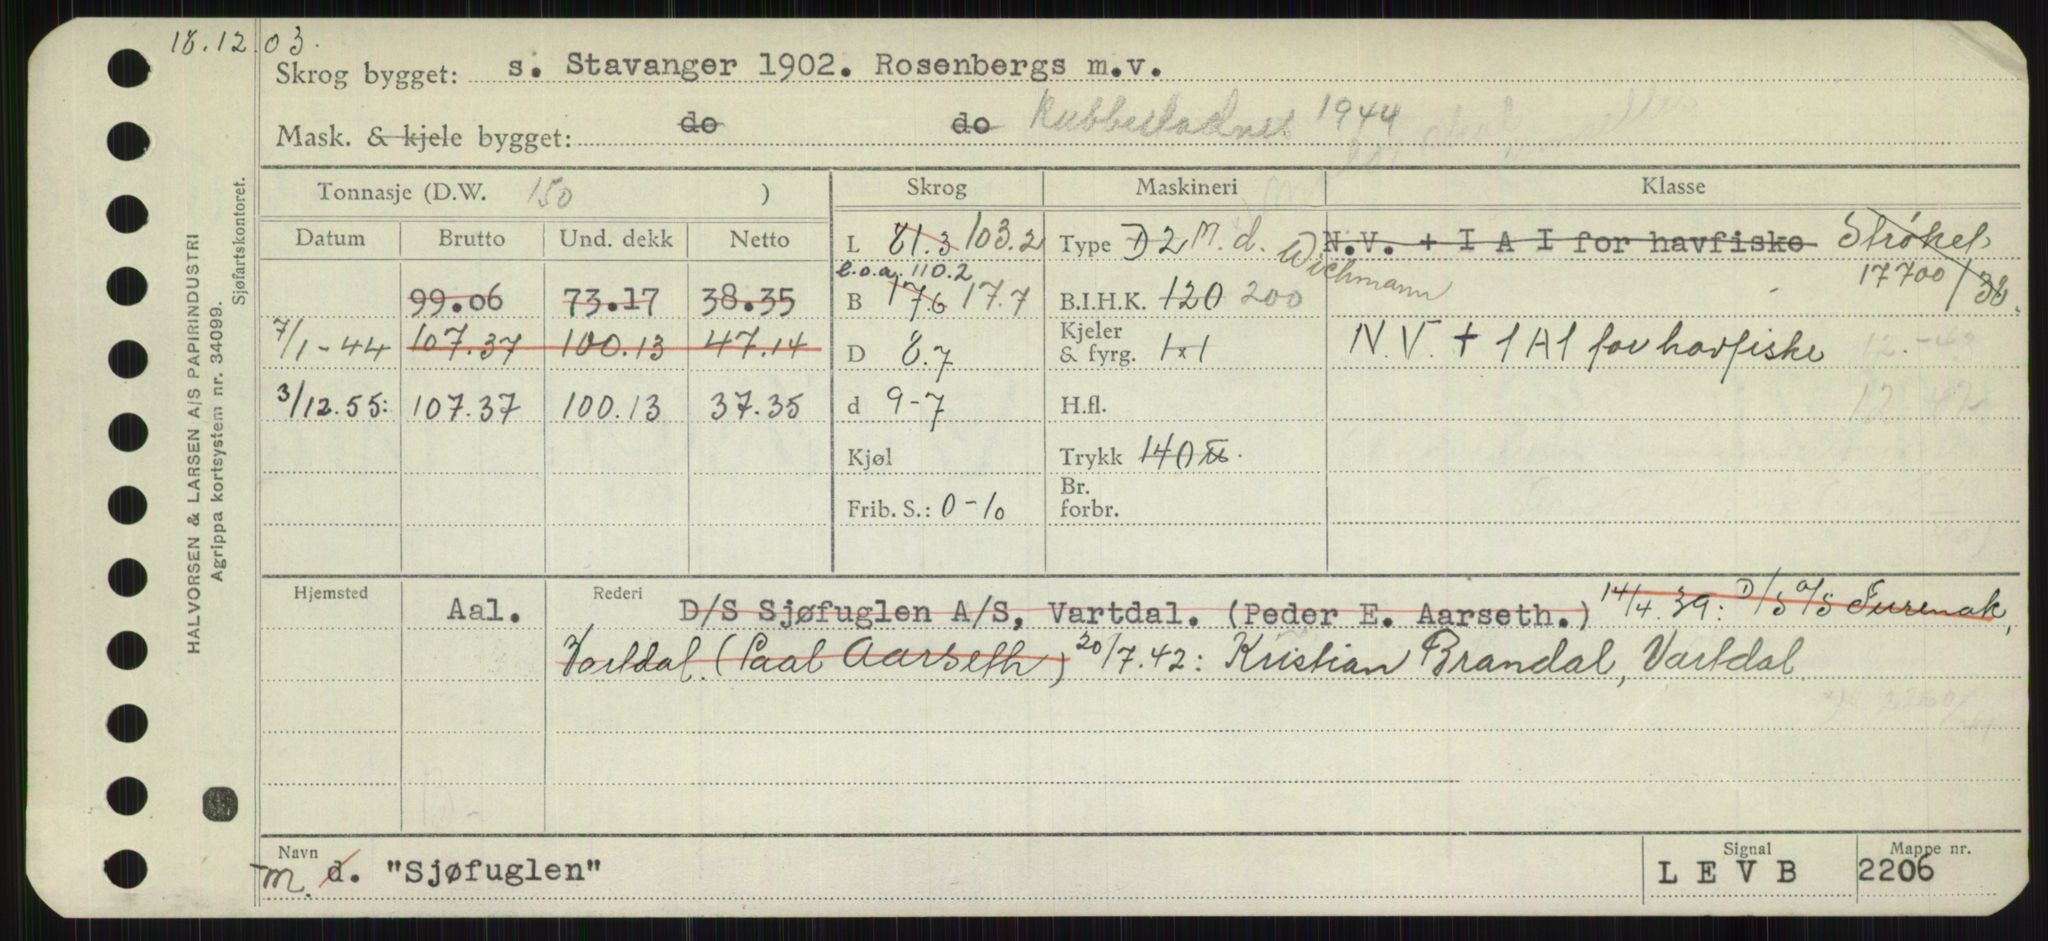 18.12.03.
Skrog bygget: s. Stavanger 1902. Rosenbergs m.v.
Mask. & kjele bygget: do do Rubbestadnes 1944
Tonnasje (D.W. 150 ) Skrog Maskineri Klasse
Datum Brutto Und. dekk Netto L 81.3 103.2 Type D2 M. d. Wichmann N.V. + I A I for havfiske Strøket
l.o.a. 110.2 17700/38.
99.06 73.17 38.35 B 17.6 17.7 B.I.H.K. 120 200
7/1-44 107.37 100.13 47.14 D 8.7 Kjeler & fyrg. 1x1 N.V. + 1A1 for havfiske 12.-42
3/12.55: 107.37 100.13 37.35 d 9-7 H.fl. 12 42
Kjøl Trykk 140
Frib. S.: 0-10 Br. forbr.
Hjemsted Aal. Rederi D/S Sjøfuglen A/S, Vartdal. (Peder E. Aarseth.) 14/4.39: D/S A/S Furenak,
Vartdal. (Paal Aarseth) 20/7.42: Kristian Brandal, Vartdal
Navn m. d. "Sjøfuglen" Signal L E V B Mappe nr. 2206
HALVORSEN & LARSEN A/S PAPIRINDUSTRI
Agrippa kortsystem nr. 34099.
Sjøfartskontoret.